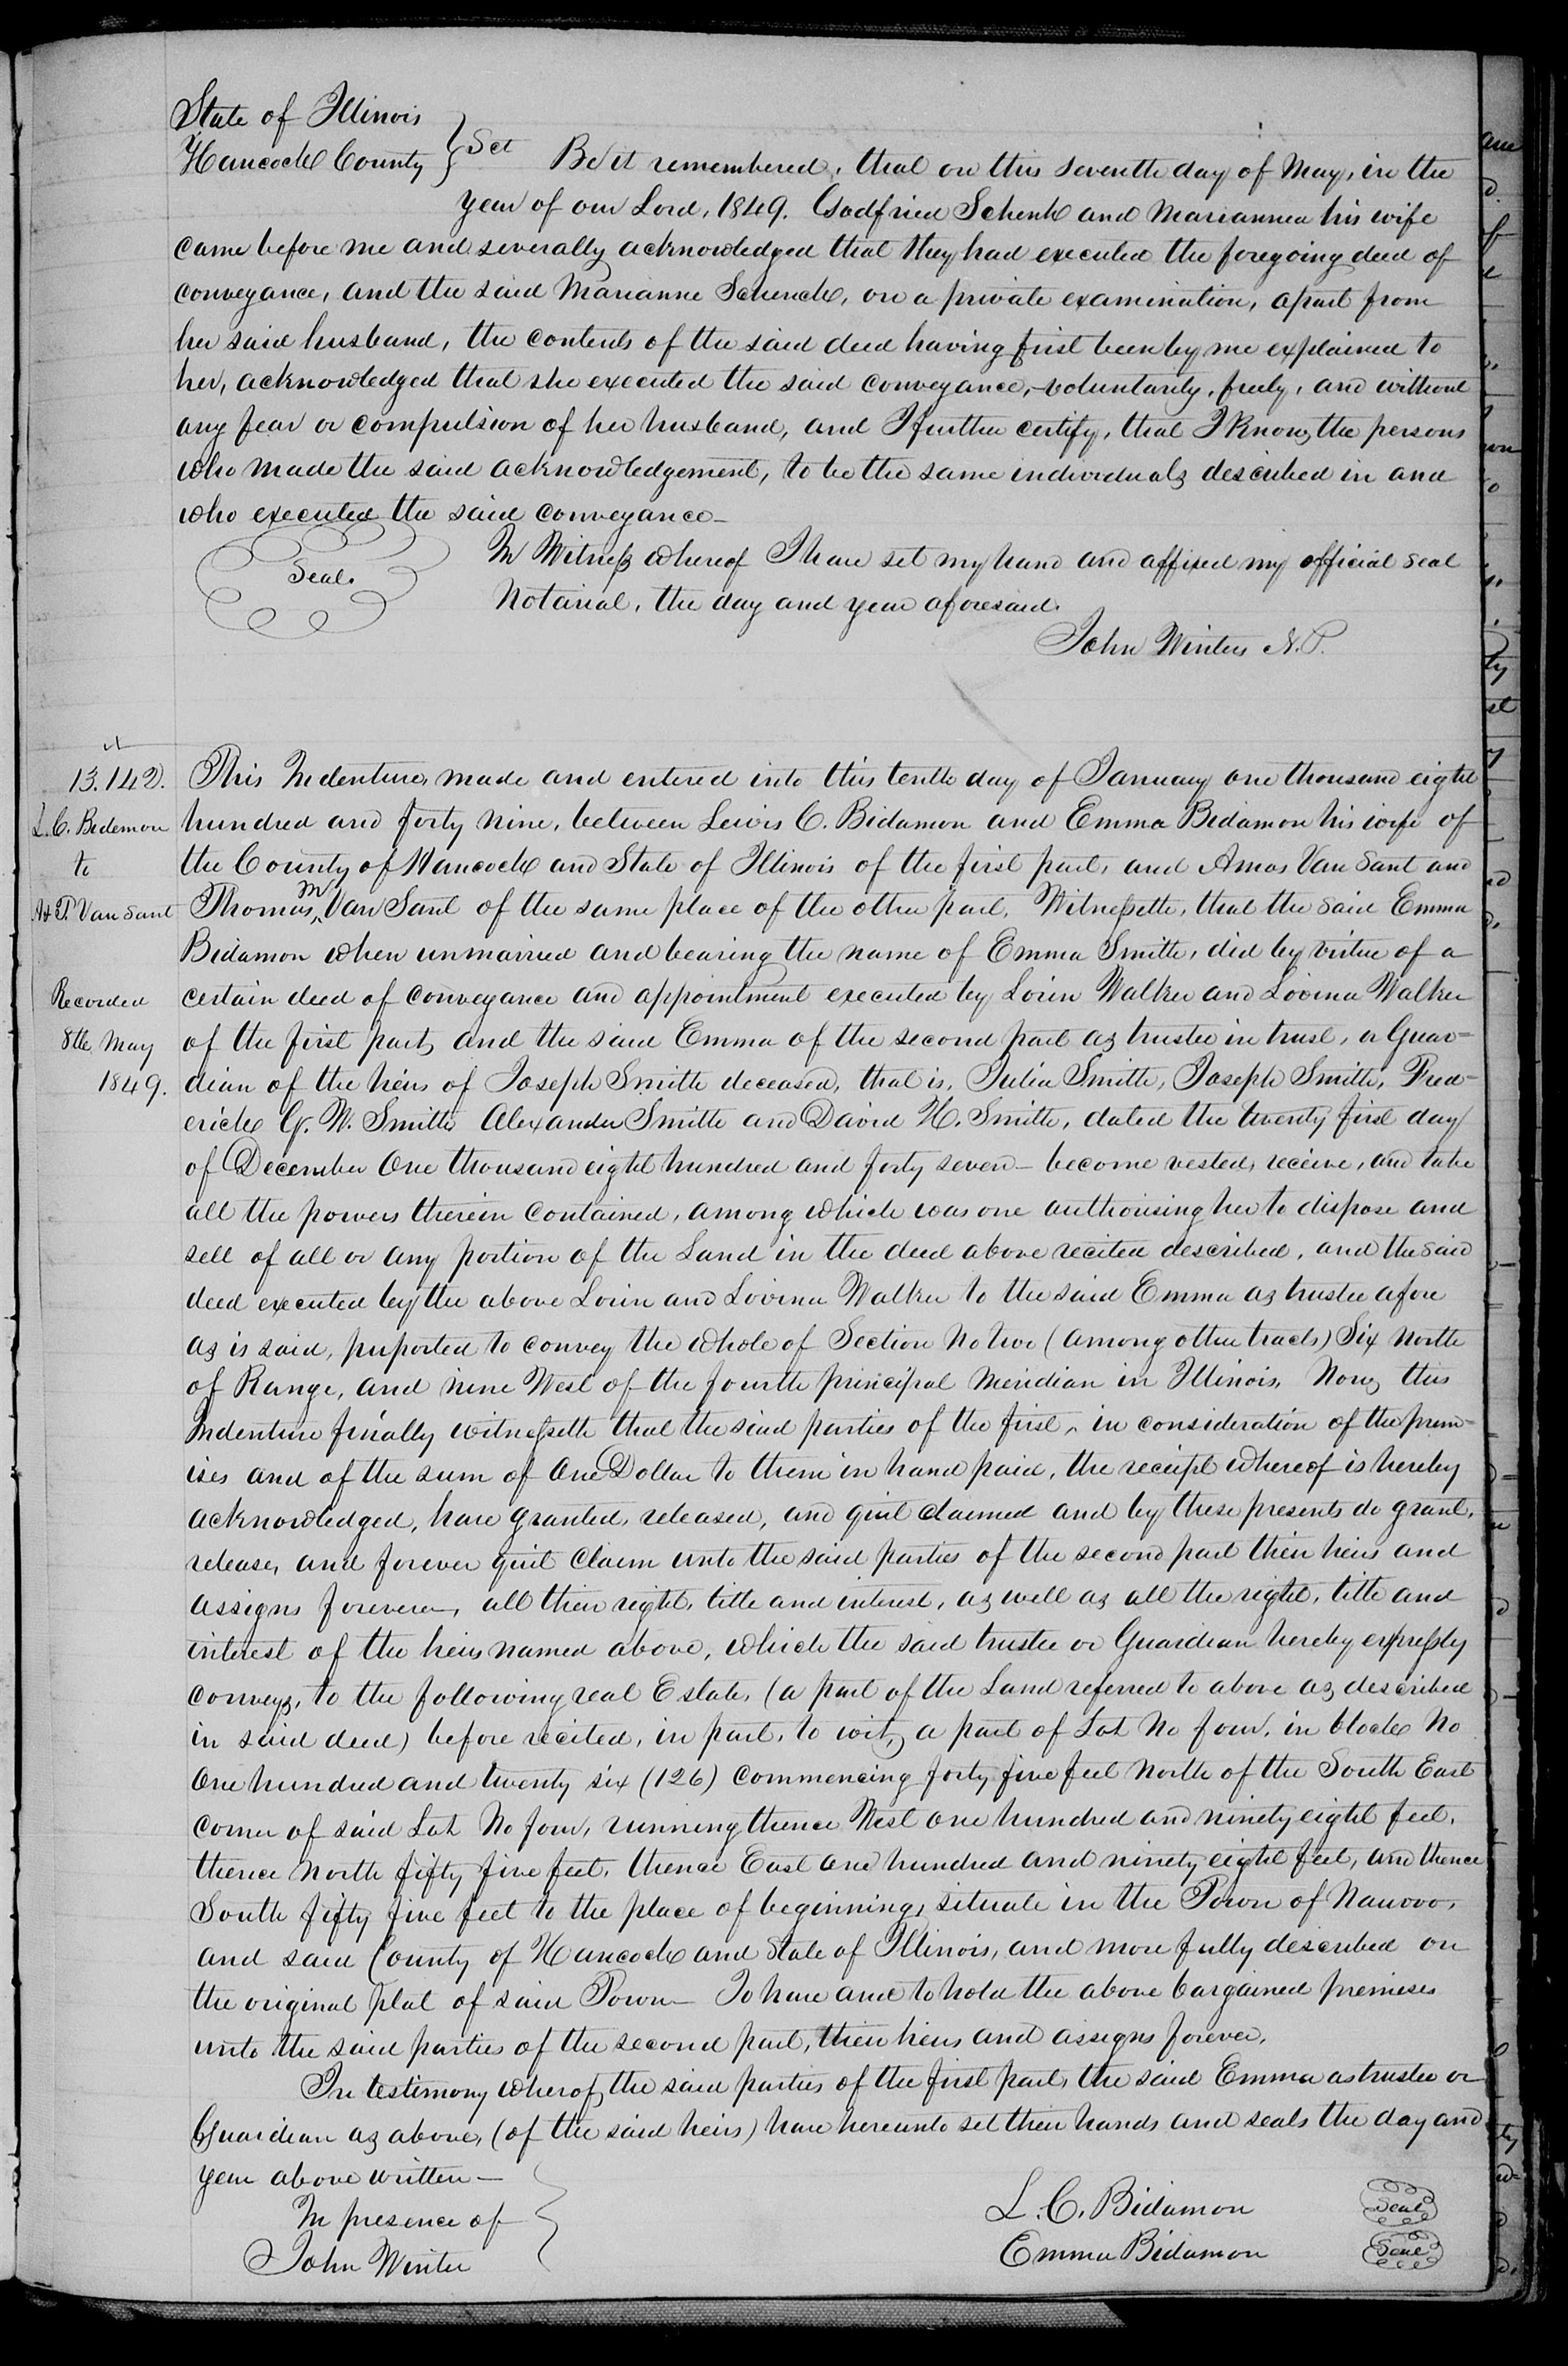 State of Illinois
Hancock County } Sct Be it remembered, that on this seventh day of May, in the
year of our Lord, 1849. Godfried Schenk and Mariannea his wife
came before me and severally acknowledged that they had executed the foregoing deed of
conveyance, and the said Marianne Schenck, on a private examination, apart from
her said husband, the contents of the said deed having first been by me explained to
her, acknowledged that she executed the said conveyance, voluntarily, freely, and without
any fear or compulsion of her husband, and I further certify, that I Know, the persons
who made the said acknowledgement, to be the same individuals described in and
who executed the said conveyance—
Seal.
In Witness whereof I have set my hand and affixed my official seal
Notarial, the day and year aforesaid.
John Winters N.P.
13.142.
L. C. Bidemon
to
A & T. Van Sant
Recorded
8th May
1849.
This Indenture, made and entered into this tenth day of January one thousand eight
hundred and forty nine, between Lewis C. Bidamon and Emma Bidamon his wife of
the County of Hancock and State of Illinois of the first part, and Amos Van Sant and
Thomas ^M Van Sant of the same place of the other part, Witnesseth, that the said Emma
Bidamon when unmarried and bearing the name of Emma Smith, did by virtue of a
certain deed of conveyance and appointment executed by Lorin Walker and Lovina Walker
of the first part, and the said Emma of the second part as trustee in trust, or Guar=
dian of the heirs of Joseph Smith deceased, that is, Julia Smith, Joseph Smith, Fred=
erick G. W. Smith Alexander Smith and David H. Smith, dated the twenty first day
of December One thousand eight hundred and forty seven— become vested, receive, and take
all the powers therein contained, among which was one authorising her to dispose and
sell of all or any portion of the Land in the deed above recited described, and the said
deed executed by the above Lorin and Lovina Walker to the said Emma as trustee afore
as is said, purported to convey the whole of Section No two (among other tracts) Six North
of Range, and nine West of the fourth principal Meridian in Illinois, Now, this
Indenture finally witnesseth that the said parties of the first ^ in consideration of the prem=
ises and of the sum of One Dollar to them in hand paid, the receipt whereof is hereby
acknowledged, have granted, released, and quit claimed and by these presents do grant,
release, and forever quit Claim unto the said parties of the second part their heirs and
assigns forever, all their right, title and interest, as well as all the right, title and
interest of the heirs named above, which the said trustee or Guardian hereby expressly
conveys, to the following real Estate, (a part of the Land referred to above as described
in said deed) before recited, in part, to wit, a part of Lot No four, in block No
One hundred and twenty six (126) Commencing forty five feet North of the South East
corner of said Lot No four, running thence West one hundred and ninety eight feet,
thence North fifty five feet, thence East one hundred and ninety eight feet, and thence
South fifty five feet to the place of beginning, situate in the Town of Nauvoo,
and said County of Hancock and State of Illinois, and more fully described on
the original plat of said Town— To have and to hold the above bargained premises
unto the said parties of the second part, their heirs and assigns forever,
In testimony wherof, the said parties of the first part, the said Emma as trustee or
Guardian as above, (of the said heirs) have hereunto set their hands and seals the day and
year above written—
In presence of
John Winter
L. C. Bidamon Seal
Emma Bidamon Seal